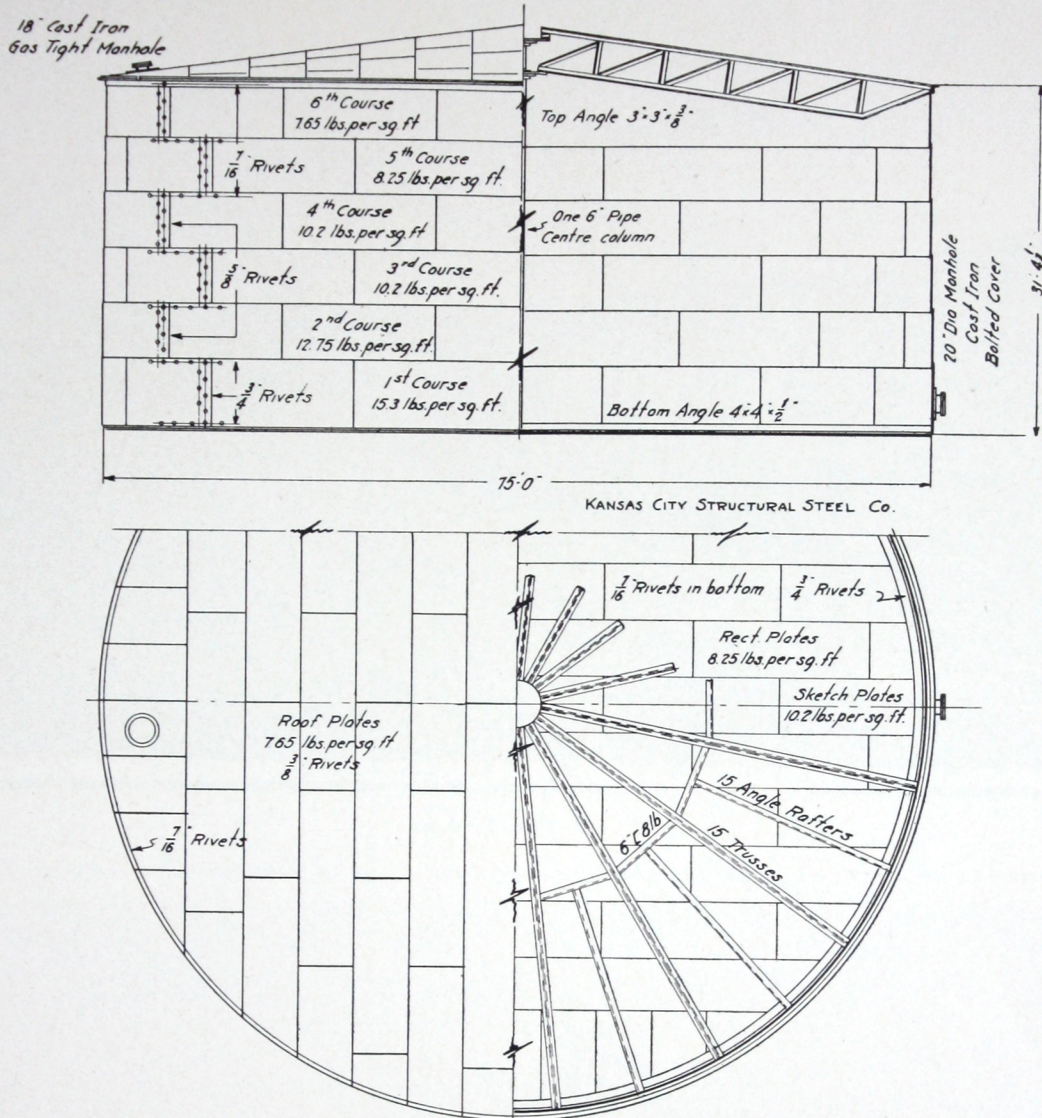 18" Cast Iron
Gas Tight Manhole
6th Course
7.65 lbs. per sq. ft
Top Angle 3"×3"×3/8"
7/16" Rivets
5th Course
8.25 lbs. per sq. ft.
4th Course
10.2 lbs. per sq. ft.
One 6" Pipe
Centre column
5/8" Rivets
3rd Course
10.2 lbs. per sq. ft.
2nd Course
12.75 lbs. per sq. ft.
3/4" Rivets
1st Course
15.3 lbs. per sq. ft.
Bottom Angle 4"×4"×1/2"
20" Dia Manhole
Cast Iron
Bolted Cover
75'-0"
KANSAS CITY STRUCTURAL STEEL CO.
7/16" Rivets in bottom
3/4" Rivets
Rect. Plates
8.25 lbs. per sq. ft
Sketch Plates
10.2 lbs. per sq. ft.
Roof Plates
7.65 lbs. per sq. ft
3/8" Rivets
7/16" Rivets
15 Angle Rafters
15 Trusses
6"[ 8 lb